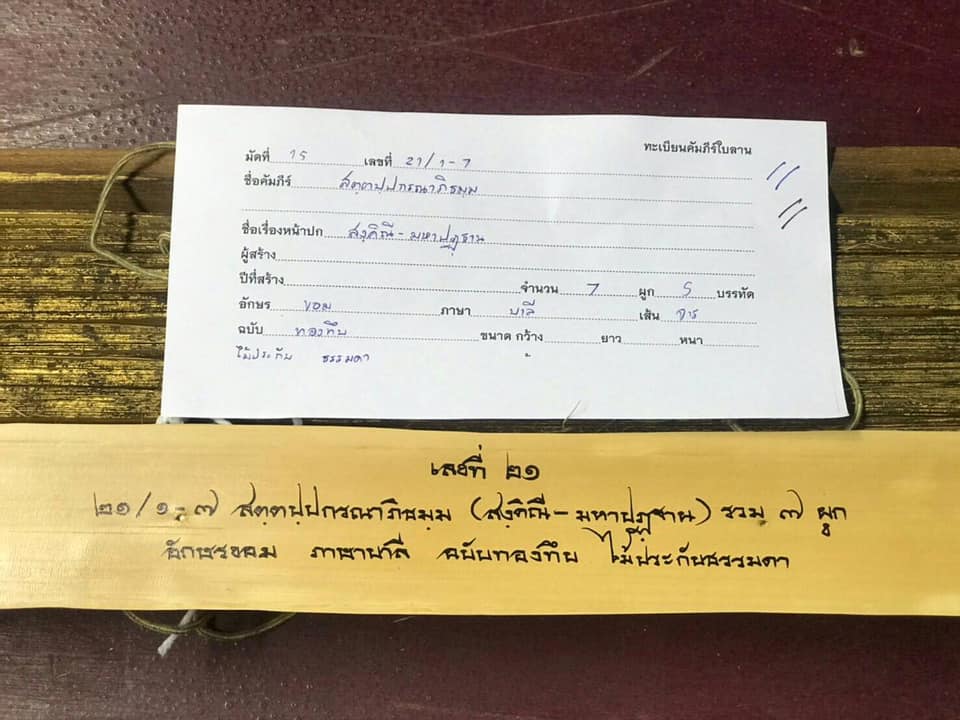 ทะเบียนคัมภีร์ใบลาน
มัดที่ 15 เลขที่ 21/1-7
ชื่อคัมภีร์ สตฺตปฺปกรณาภิธมฺม
ชื่อเรื่องหน้าปก สงฺคิณี - มหาปฏฺฐาน
ผู้สร้าง
ปีที่สร้าง จำนวน 7 ผูก 5 บรรทัด
อักษร ขอม ภาษา บาลี เส้น จาร
ฉบับ ทองทึบ ขนาด กว้าง ยาว หนา
ไม้ประกับ ธรรมดา
เลขที่ ๒๑
๒๑/๑-๗ สตฺตปฺปกรณาภิธมฺม (สงฺคิณี - มหาปฏฺฐาน) รวม ๗ ผูก
อักษรขอม ภาษาบาลี ฉบับทองทึบ ไม้ประกับธรรมดา